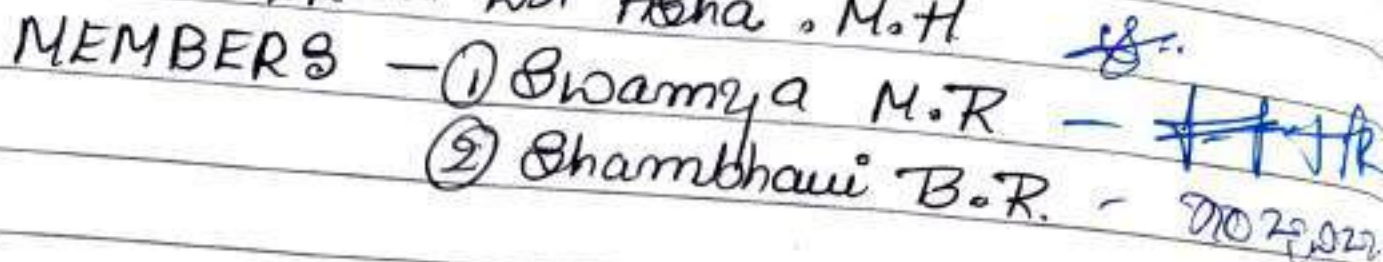 M.H
MEMBERS - ① Swamya M.R -
② Shambhavi B.R. -